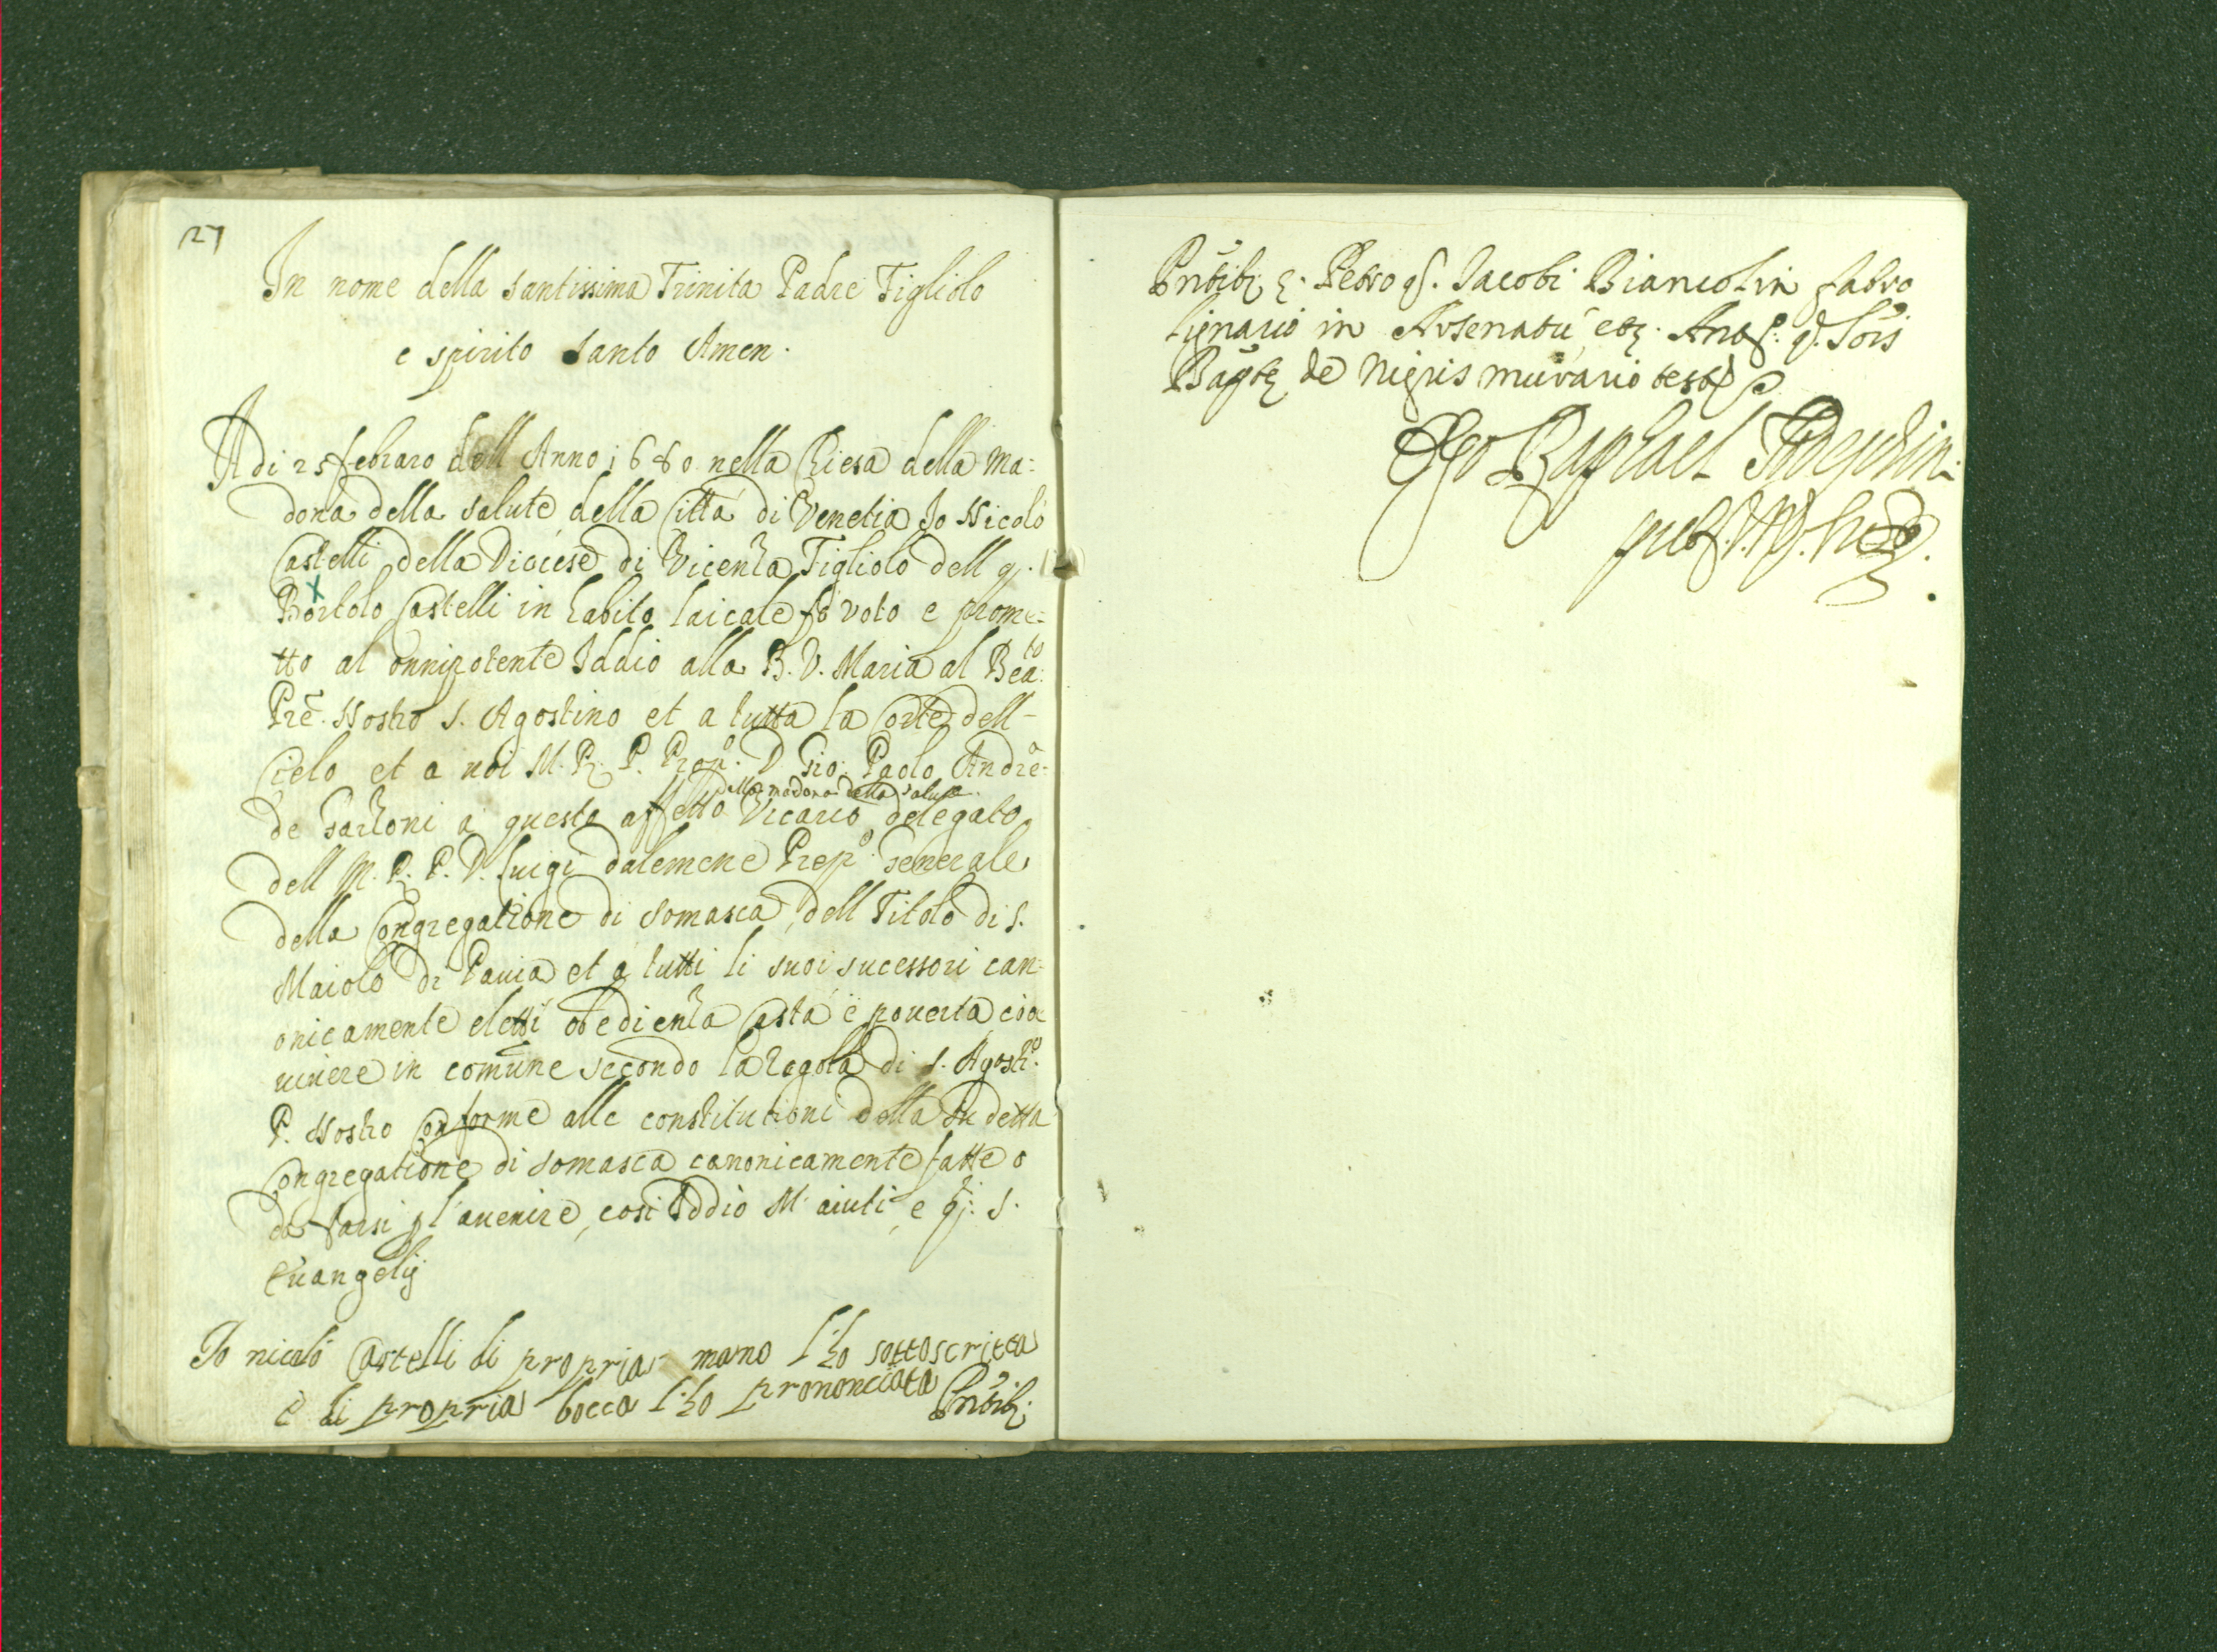 27
In nome della santissima Trinita Padre Figliolo
e spirito santo Amen.
Adi 25 febraro dell Anno 1680 nella Chiesa della Ma:
dona della salute della Citta di Venetia Io Nicolò
Castelli della Diocese di Vicenza Figliolo dell q.
Bortolo Castelli in habito laicale fo voto e prome=
tto al onnipotente Iddio alla B. V. Maria al Bea:to
Pre. Nostro S. Agostino et a tutta la Corte dell
Cielo et a noi M. R. P. Prop.o D Gio: Paolo Andre=
della madona della salute
de Garzoni a questo affetto Vicario delegato
dell M. R. P. D. Luigi Prep.o Generale
della Congregatione di Somasca, dell Titolo di S.
Maiolo di Pauia et a tutti li suoi sucessori can=
onicamente eletti obedienza Casta e pouerta cioe
uiuere in comune secondo la Regola di S. Agosti.o
P. Nostro Conforme alle constitutioni della su detta
Congregatione di Somasca canonicamente fatte o
da farsi p l'auenire, cosi Iddio M' aiuti e qj. S.
Euangelij
Io nicolò Castelli di propria mano l'ho sottoscritta
e di propria bocca l'ho prononciata Pntib;
Pntib; Petro q. Iacobi Biancolin fabro
lignario in Arsenatu, et q. Iois
Bapte de Nigris murario test
Ego Raphael